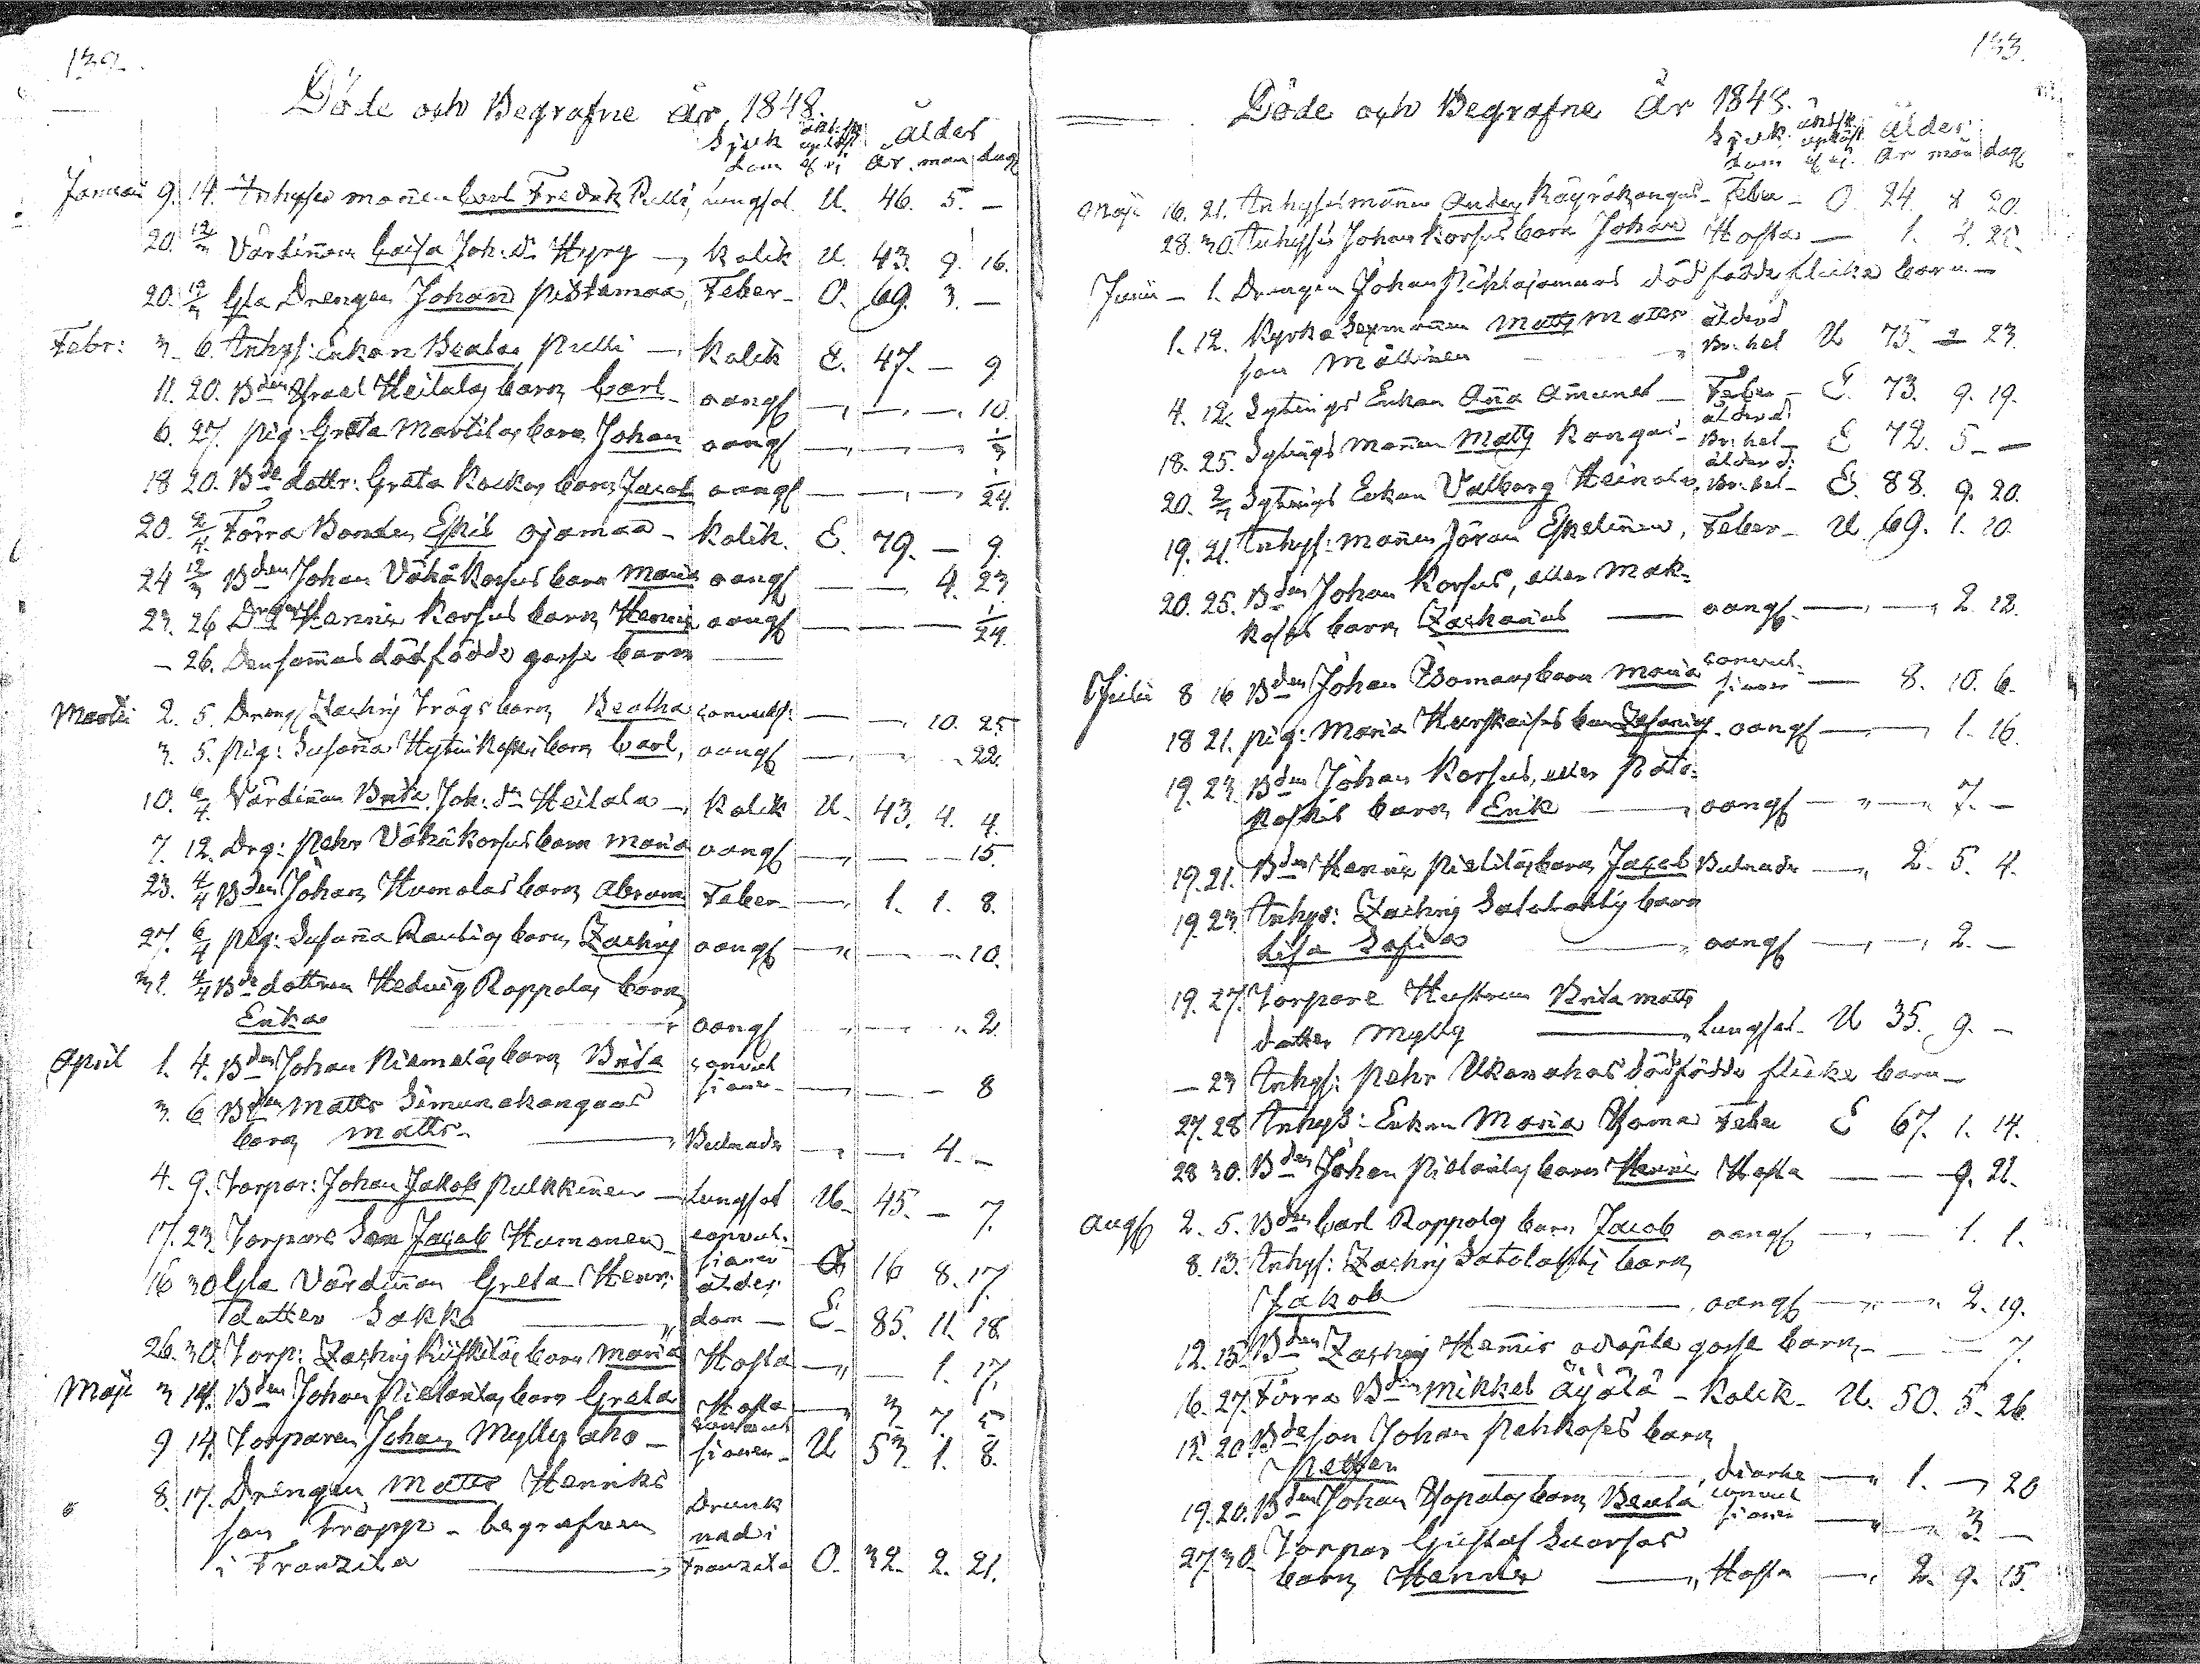 132.
Döde och Begrafne År 1848.
Sjuk dom
Ålder
år. mån dag
Januari 9. 14. Inhyses mannen Carl Fredrik Pulli, lungsot U. 46. 5. —
20. 12/3 Värdinnan Caisa Joh: dr Hyry — Kolik U. 43. 9. 16.
20. 12/3 Gla Drengen Johan Pistamaa, Feber — O. 69. 3. —
Febr: 3. 6. Inhys: Enkan Beata Pulli — Kolik E. 47. — 9
11. 20. Bden Israel Heilalas barn Carl — oangf — — — 10.
6. 27. pig: Greta Martilas barn Johan oangf — — — 1/2
18 20. Bde dottr: Greta Kockos barn Jacob oangf — — — 1/24.
20. 2/4. Förra Bonden Eskil Ojamaa — Kolik. E. 79. — 9.
24 12/3 Bden Johan Vähäkorsus barn Maria oangf — — 4. 23
23. 26 Drgen Henric Korsus barn Henric oangf — — — 1/24.
— 26. Densammas dödfödde gosse barn —
Martii 2. 5. Dreng Zachris Trägs barn Beatha convuls: — — 10. 25
3. 5. pig: Susanna Hytinkoskis barn Carl, oangf — — 22.
10. 6/4. Värdinnan Brita Joh: dr Heilala — Kolik U. 43. 4. 4.
7. 12. Drg: Pehr Vähäkorsus barn Maria oangf — — — 15.
23. 4/4 Bden Johan Humalas barn Abram Feber — 1. 1. 8.
27. 6/4 pig: Susanna Rautios barn Zachris oangf — — — 10.
31. 4/4 Bde dottren Hedvig Roppolas barn
Erika — oangf — — — 2.
April 1. 4. Bden Johan Niemeläs barn Brita convul sioner — — — 8
3. 6 Bden Matts Simunakangaas
barn Matts — Bulnade — — 4. —
4. 9. Torpar: Johan Jakob Pulkkinen — Lungsot U. 45. — 7.
17. 23. Torpare Son Jacob Humonen convul: sioner O 16 8. 17.
16 30 Gla Värdinnan Greta Henr:
dotter Sakko — ålder dom — E. 85. 11. 18.
26. 30. Torp: Zachris Kääskiläs barn Maria Hosta — — 1. 17.
Maji 3 14. Bden Johan Pietarilas barn Greta Hosta — 3. 7. 5
9 14. Torparen Johan Myllyaho — convul sioner — U 53. 1. 8.
8. 17. Drengen Matts Henriks
son Tropp — begrafven Drunk nad i
i Franzila — Franzila O. 32. 2. 21.
133.
Döde och Begrafne År 1848.
Sjuk dom
Ålder
år mån dag
Maji 16. 21. Inhyses mannen Anders Käyräkangas — Feber — O. 24. 8 20.
28. 30. Inhyses Johan Korsus barn Johan Hosta — 1. 4. 28.
Junii — 1. Drengen Johan Pihlajamaas dödfödde flicke barn —
1. 12. Kyrko Sexmannen Matts Matts ålderd
son Mällinen — Br: hel U 75. 2 23.
4. 12. Sytnings Enkan Anna Amunet — Feber — E. 73. 9. 19.
18. 25. Sytnings mannen Matts Kangas — ålderd: Br: hel — E 72. 5 — —
20. 2/7 Sytnings Enkan Valborg Heinola ålderd: Br: hel — E. 88. 9. 20.
19. 21. Inhys: mannen Jöran Eskelinen, Feber — U. 69. 1. 10.
20. 25. Bden Johan Korsus, eller Mak-
koses barn Zacharias — oangf. — — 2. 12.
Julii 8 16 Bden Johan Isomaas barn Maria convul: sioner — 8. 10. 6.
18 21. pig: Maria Hurskaises barn Zefanias. oangf — — 1. 16.
19. 23. Bden Johan Korsus, eller Pato-
koskis barn Erik — oangf — — 7. —
19. 21. Bden Henric Pietiläs barn Jacob Bulnade — 2. 5. 4.
19. 23. Inhys: Zachris Satolahtis barn
Lisa Sofia — oangf — — 2. —
19. 27. Torpare Hustrun Brita Matts
dotter Mylly — Lungsot — U 35. 9. —
— 23 Inhys: Pehr Ukonahos dödfödde flicke barn —
27. 28 Inhys: Enkan Maria Yoma Feber E 67. 1. 14.
28 30. Bden Johan Pietarilas barn Henric Hosta — — 9. 21.
Aug 2. 5. Bden Carl Roppolas barn Jacob oangf — — 1. 1.
8. 13. Inhys: Zachris Satolahtis barn
Jakob — oangf — — 2. 19.
12. 13. Bden Zachris Hemmis odöpte gosse barn — — — 7.
16. 27. Förra Bden Mikkel Äijälä — Kolik — U. 50. 5. 26.
15. 20. Bde son Johan Pehkoses barn
Petter — diarhe — 1. — 20
19. 20. Bden Johan Yopolas barn Beata convul sioner — — 3. —
27. 30. Torpar Gustaf Suorsas
barn Henric — Hosta — 2. 9. 15.